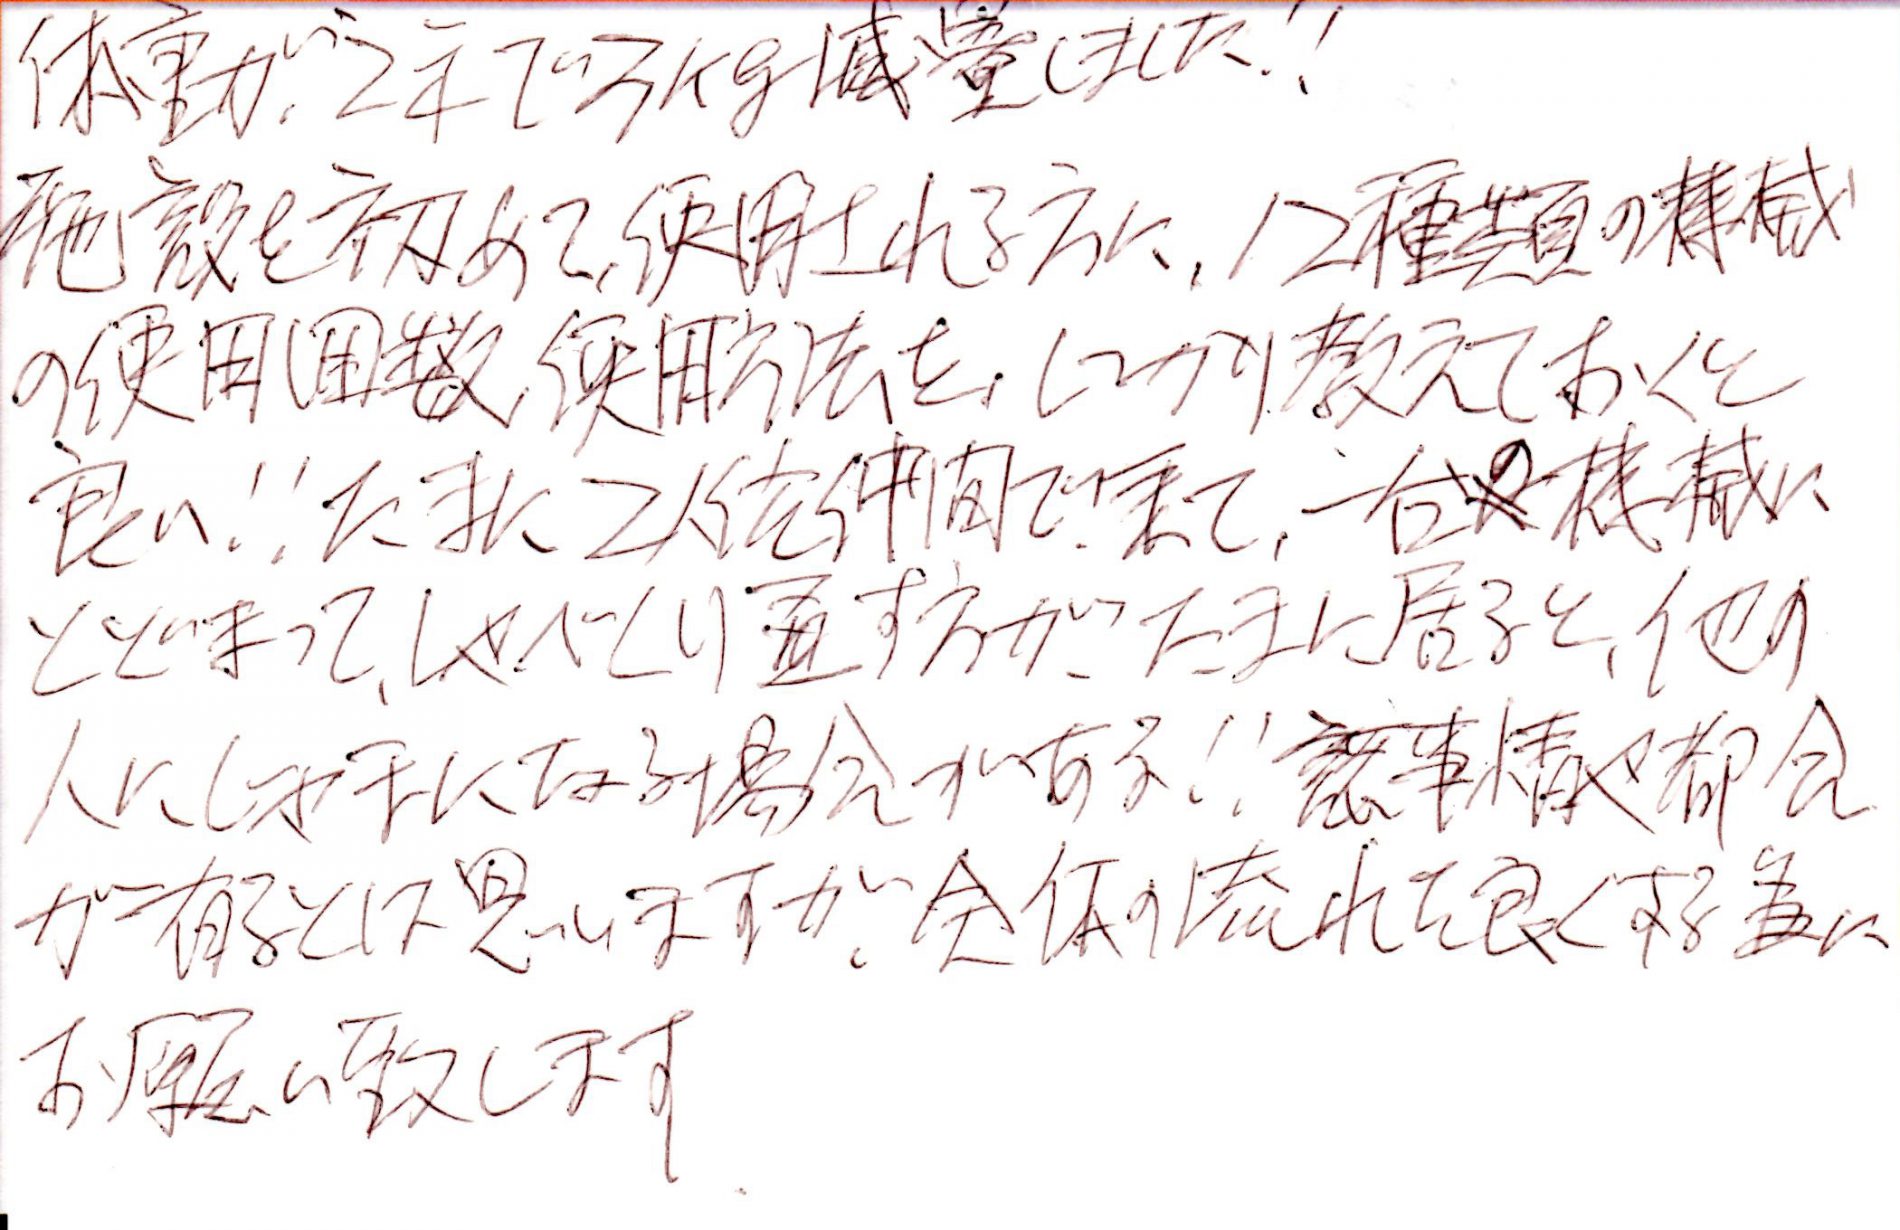 体重が、2年で3kg減量しました!!
施設を初めて、使用される方に、12種類の機械
の使用回数、使用方法を、しっかり教えておくと
良い!!たまに2人位仲間で来て、一台の機械に
とどまって、しゃべくり直す方が、たまに居ると、他の
人にじゃまになる場合がある!!諸事情や都合
が有るとは思いますが、全体の流れを良くする為に
お願い致します